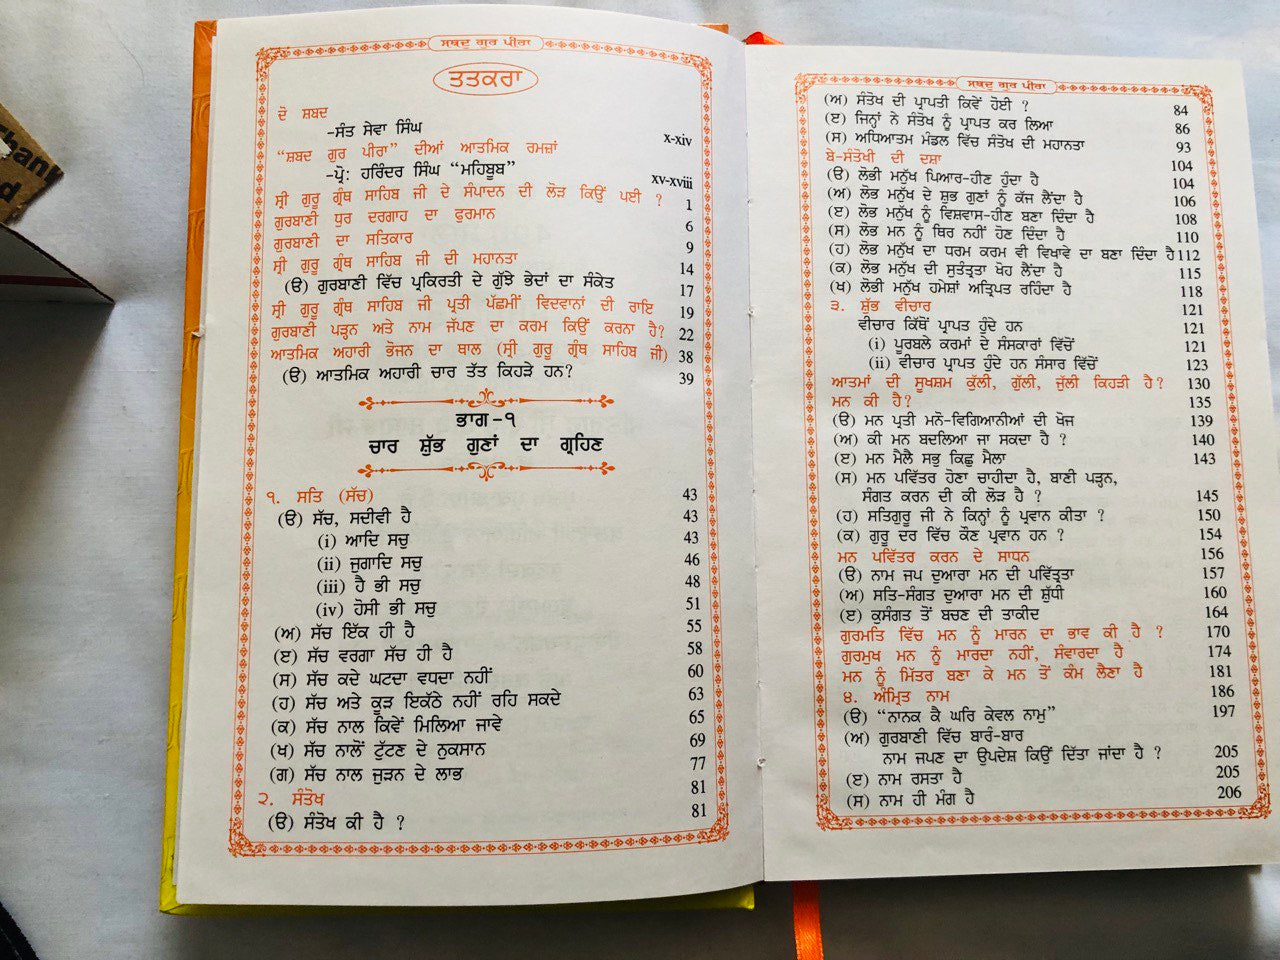 ਸਬਦੁ ਗੁਰ ਪੀਰਾ
ਤਤਕਰਾ
ਦੋ ਸ਼ਬਦ
-ਸੰਤ ਸੇਵਾ ਸਿੰਘ x-xiv
“ਸ਼ਬਦ ਗੁਰ ਪੀਰਾ” ਦੀਆਂ ਆਤਮਿਕ ਰਮਜ਼ਾਂ
-ਪ੍ਰੋ: ਹਰਿੰਦਰ ਸਿੰਘ “ਮਹਿਬੂਬ” xv-xviii
ਸ੍ਰੀ ਗੁਰੂ ਗ੍ਰੰਥ ਸਾਹਿਬ ਜੀ ਦੇ ਸੰਪਾਦਨ ਦੀ ਲੋੜ ਕਿਉਂ ਪਈ ? 1
ਗੁਰਬਾਣੀ ਧੁਰ ਦਰਗਾਹ ਦਾ ਫੁਰਮਾਨ 6
ਗੁਰਬਾਣੀ ਦਾ ਸਤਿਕਾਰ 9
ਸ੍ਰੀ ਗੁਰੂ ਗ੍ਰੰਥ ਸਾਹਿਬ ਜੀ ਦੀ ਮਹਾਨਤਾ 14
(ੳ) ਗੁਰਬਾਣੀ ਵਿੱਚ ਪ੍ਰਕਿਰਤੀ ਦੇ ਗੁੱਝੇ ਭੇਦਾਂ ਦਾ ਸੰਕੇਤ 17
ਸ੍ਰੀ ਗੁਰੂ ਗ੍ਰੰਥ ਸਾਹਿਬ ਜੀ ਪ੍ਰਤੀ ਪੱਛਮੀਂ ਵਿਦਵਾਨਾਂ ਦੀ ਰਾਇ 19
ਗੁਰਬਾਣੀ ਪੜ੍ਹਨ ਅਤੇ ਨਾਮ ਜੱਪਣ ਦਾ ਕਰਮ ਕਿਉਂ ਕਰਨਾ ਹੈ? 22
ਆਤਮਿਕ ਅਹਾਰੀ ਭੋਜਨ ਦਾ ਥਾਲ (ਸ੍ਰੀ ਗੁਰੂ ਗ੍ਰੰਥ ਸਾਹਿਬ ਜੀ) 38
(ੳ) ਆਤਮਿਕ ਅਹਾਰੀ ਚਾਰ ਤੱਤ ਕਿਹੜੇ ਹਨ? 39
ਭਾਗ-੧
ਚਾਰ ਸ਼ੁੱਭ ਗੁਣਾਂ ਦਾ ਗ੍ਰਹਿਣ
੧. ਸਤਿ (ਸੱਚ) 43
(ੳ) ਸੱਚ, ਸਦੀਵੀ ਹੈ 43
(i) ਆਦਿ ਸਚੁ 43
(ii) ਜੁਗਾਦਿ ਸਚੁ 46
(iii) ਹੈ ਭੀ ਸਚੁ 48
(iv) ਹੋਸੀ ਭੀ ਸਚੁ 51
(ਅ) ਸੱਚ ਇੱਕ ਹੀ ਹੈ 55
(ੲ) ਸੱਚ ਵਰਗਾ ਸੱਚ ਹੀ ਹੈ 58
(ਸ) ਸੱਚ ਕਦੇ ਘਟਦਾ ਵਧਦਾ ਨਹੀਂ 60
(ਹ) ਸੱਚ ਅਤੇ ਕੂੜ ਇਕੱਠੇ ਨਹੀਂ ਰਹਿ ਸਕਦੇ 63
(ਕ) ਸੱਚ ਨਾਲ ਕਿਵੇਂ ਮਿਲਿਆ ਜਾਵੇ 65
(ਖ) ਸੱਚ ਨਾਲੋਂ ਟੁੱਟਣ ਦੇ ਨੁਕਸਾਨ 69
(ਗ) ਸੱਚ ਨਾਲ ਜੁੜਨ ਦੇ ਲਾਭ 77
੨. ਸੰਤੋਖ 81
(ੳ) ਸੰਤੋਖ ਕੀ ਹੈ ? 81
ਸਬਦੁ ਗੁਰ ਪੀਰਾ
(ਅ) ਸੰਤੋਖ ਦੀ ਪ੍ਰਾਪਤੀ ਕਿਵੇਂ ਹੋਈ ? 84
(ੲ) ਜਿਨ੍ਹਾਂ ਨੇ ਸੰਤੋਖ ਨੂੰ ਪ੍ਰਾਪਤ ਕਰ ਲਿਆ 86
(ਸ) ਅਧਿਆਤਮ ਮੰਡਲ ਵਿੱਚ ਸੰਤੋਖ ਦੀ ਮਹਾਨਤਾ 93
ਬੇ-ਸੰਤੋਖੀ ਦੀ ਦਸ਼ਾ 104
(ੳ) ਲੋਭੀ ਮਨੁੱਖ ਪਿਆਰ-ਹੀਣ ਹੁੰਦਾ ਹੈ 104
(ਅ) ਲੋਭ ਮਨੁੱਖ ਦੇ ਸ਼ੁਭ ਗੁਣਾਂ ਨੂੰ ਕੱਜ ਲੈਂਦਾ ਹੈ 106
(ੲ) ਲੋਭ ਮਨੁੱਖ ਨੂੰ ਵਿਸ਼ਵਾਸ-ਹੀਣ ਬਣਾ ਦਿੰਦਾ ਹੈ 108
(ਸ) ਲੋਭ ਮਨ ਨੂੰ ਥਿਰ ਨਹੀਂ ਹੋਣ ਦਿੰਦਾ ਹੈ 110
(ਹ) ਲੋਭ ਮਨੁੱਖ ਦਾ ਧਰਮ ਕਰਮ ਵੀ ਵਿਖਾਵੇ ਦਾ ਬਣਾ ਦਿੰਦਾ ਹੈ 112
(ਕ) ਲੋਭ ਮਨੁੱਖ ਦੀ ਸੁਤੰਤ੍ਰਤਾ ਖੋਹ ਲੈਂਦਾ ਹੈ 115
(ਖ) ਲੋਭੀ ਮਨੁੱਖ ਹਮੇਸ਼ਾਂ ਅਤ੍ਰਿਪਤ ਰਹਿੰਦਾ ਹੈ 118
੩. ਸ਼ੁੱਭ ਵੀਚਾਰ 121
ਵੀਚਾਰ ਕਿੱਥੋਂ ਪ੍ਰਾਪਤ ਹੁੰਦੇ ਹਨ 121
(i) ਪੂਰਬਲੇ ਕਰਮਾਂ ਦੇ ਸੰਸਕਾਰਾਂ ਵਿੱਚੋਂ 121
(ii) ਵੀਚਾਰ ਪ੍ਰਾਪਤ ਹੁੰਦੇ ਹਨ ਸੰਸਾਰ ਵਿੱਚੋਂ 123
ਆਤਮਾਂ ਦੀ ਸੂਖਸ਼ਮ ਕੁੱਲੀ, ਗੁੱਲੀ, ਜੁੱਲੀ ਕਿਹੜੀ ਹੈ? 130
ਮਨ ਕੀ ਹੈ? 135
(ੳ) ਮਨ ਪ੍ਰਤੀ ਮਨੋ-ਵਿਗਿਆਨੀਆਂ ਦੀ ਖੋਜ 139
(ਅ) ਕੀ ਮਨ ਬਦਲਿਆ ਜਾ ਸਕਦਾ ਹੈ ? 140
(ੲ) ਮਨ ਮੈਲੈ ਸਭੁ ਕਿਛੁ ਮੈਲਾ 143
(ਸ) ਮਨ ਪਵਿੱਤਰ ਹੋਣਾ ਚਾਹੀਦਾ ਹੈ, ਬਾਣੀ ਪੜ੍ਹਨ,
ਸੰਗਤ ਕਰਨ ਦੀ ਕੀ ਲੋੜ ਹੈ ? 145
(ਹ) ਸਤਿਗੁਰੂ ਜੀ ਨੇ ਕਿਨ੍ਹਾਂ ਨੂੰ ਪ੍ਰਵਾਨ ਕੀਤਾ ? 150
(ਕ) ਗੁਰੂ ਦਰ ਵਿੱਚ ਕੌਣ ਪ੍ਰਵਾਨ ਹਨ ? 154
ਮਨ ਪਵਿੱਤਰ ਕਰਨ ਦੇ ਸਾਧਨ 156
(ੳ) ਨਾਮ ਜਪ ਦੁਆਰਾ ਮਨ ਦੀ ਪਵਿੱਤ੍ਰਤਾ 157
(ਅ) ਸਤਿ-ਸੰਗਤ ਦੁਆਰਾ ਮਨ ਦੀ ਸ਼ੁੱਧੀ 160
(ੲ) ਕੁਸੰਗਤ ਤੋਂ ਬਚਣ ਦੀ ਤਾਕੀਦ 164
ਗੁਰਮਤਿ ਵਿੱਚ ਮਨ ਨੂੰ ਮਾਰਨ ਦਾ ਭਾਵ ਕੀ ਹੈ ? 170
ਗੁਰਮੁਖ ਮਨ ਨੂੰ ਮਾਰਦਾ ਨਹੀਂ, ਸੰਵਾਰਦਾ ਹੈ 174
ਮਨ ਨੂੰ ਮਿੱਤਰ ਬਣਾ ਕੇ ਮਨ ਤੋਂ ਕੰਮ ਲੈਣਾ ਹੈ 181
੪. ਅੰਮ੍ਰਿਤ ਨਾਮ 186
(ੳ) “ਨਾਨਕ ਕੈ ਘਰਿ ਕੇਵਲ ਨਾਮੁ” 197
(ਅ) ਗੁਰਬਾਣੀ ਵਿੱਚ ਬਾਰੰ-ਬਾਰ
ਨਾਮ ਜਪਣ ਦਾ ਉਪਦੇਸ਼ ਕਿਉਂ ਦਿੱਤਾ ਜਾਂਦਾ ਹੈ ? 205
(ੲ) ਨਾਮ ਰਸਤਾ ਹੈ 205
(ਸ) ਨਾਮ ਹੀ ਮੰਗ ਹੈ 206